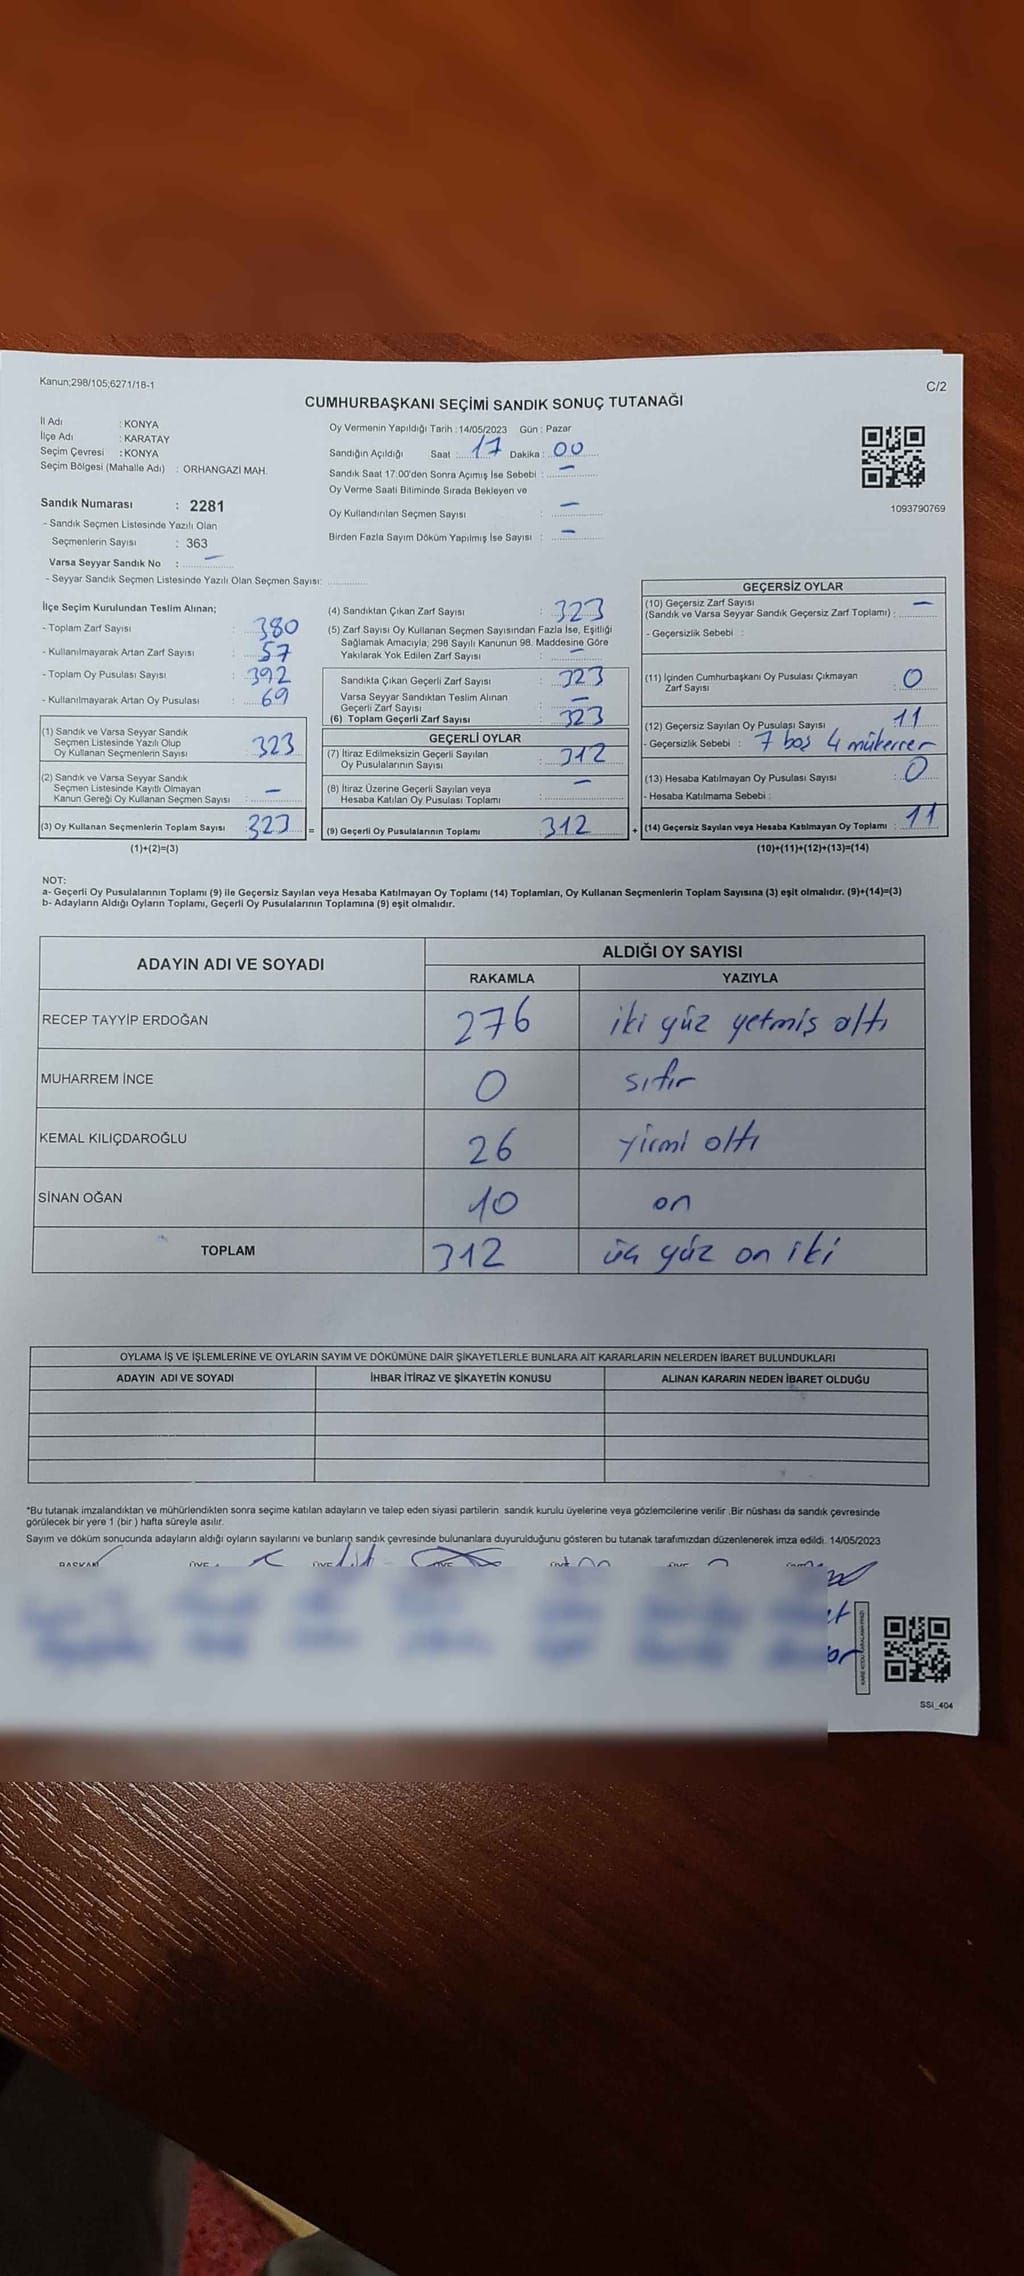 Kanun;298/105;6271/18-1
C/2
CUMHURBAŞKANI SEÇİMİ SANDIK SONUÇ TUTANAĞI
İl Adı : KONYA
İlçe Adı : KARATAY
Seçim Çevresi : KONYA
Seçim Bölgesi (Mahalle Adı) : ORHANGAZİ MAH.
Sandık Numarası : 2281
- Sandık Seçmen Listesinde Yazılı Olan
Seçmenlerin Sayısı : 363
Varsa Seyyar Sandık No : –
- Seyyar Sandık Seçmen Listesinde Yazılı Olan Seçmen Sayısı:
Oy Vermenin Yapıldığı Tarih : 14/05/2023 Gün : Pazar
Sandığın Açıldığı Saat : 17 Dakika : 00
Sandık Saat 17:00'den Sonra Açımış İse Sebebi : –
Oy Verme Saati Bitiminde Sırada Bekleyen ve
Oy Kullandırılan Seçmen Sayısı : –
Birden Fazla Sayım Döküm Yapılmış İse Sayısı : –
1093790769
İlçe Seçim Kurulundan Teslim Alınan;
- Toplam Zarf Sayısı : 380
- Kullanılmayarak Artan Zarf Sayısı : 57
- Toplam Oy Pusulası Sayısı : 392
- Kullanılmayarak Artan Oy Pusulası : 69
(1) Sandık ve Varsa Seyyar Sandık
Seçmen Listesinde Yazılı Olup
Oy Kullanan Seçmenlerin Sayısı 323
(2) Sandık ve Varsa Seyyar Sandık
Seçmen Listesinde Kayıtlı Olmayan
Kanun Gereği Oy Kullanan Seçmen Sayısı : –
(3) Oy Kullanan Seçmenlerin Toplam Sayısı : 323 =
(1)+(2)=(3)
(4) Sandıktan Çıkan Zarf Sayısı : 323
(5) Zarf Sayısı Oy Kullanan Seçmen Sayısından Fazla İse, Eşitliği
Sağlamak Amacıyla; 298 Sayılı Kanunun 98. Maddesine Göre
Yakılarak Yok Edilen Zarf Sayısı : –
Sandıkta Çıkan Geçerli Zarf Sayısı : 323
Varsa Seyyar Sandıktan Teslim Alınan
Geçerli Zarf Sayısı : –
(6) Toplam Geçerli Zarf Sayısı : 323
GEÇERLİ OYLAR
(7) İtiraz Edilmeksizin Geçerli Sayılan
Oy Pusulalarının Sayısı : 312
(8) İtiraz Üzerine Geçerli Sayılan veya
Hesaba Katılan Oy Pusulası Toplamı : –
(9) Geçerli Oy Pusulalarının Toplamı : 312 +
GEÇERSİZ OYLAR
(10) Geçersiz Zarf Sayısı
(Sandık ve Varsa Seyyar Sandık Geçersiz Zarf Toplamı) : –
- Geçersizlik Sebebi :
(11) İçinden Cumhurbaşkanı Oy Pusulası Çıkmayan
Zarf Sayısı : 0
(12) Geçersiz Sayılan Oy Pusulası Sayısı : 11
- Geçersizlik Sebebi : 7 boş 4 mükerrer
(13) Hesaba Katılmayan Oy Pusulası Sayısı : 0
- Hesaba Katılmama Sebebi :
(14) Geçersiz Sayılan veya Hesaba Katılmayan Oy Toplamı : 11
(10)+(11)+(12)+(13)=(14)
NOT:
a- Geçerli Oy Pusulalarının Toplamı (9) ile Geçersiz Sayılan veya Hesaba Katılmayan Oy Toplamı (14) Toplamları, Oy Kullanan Seçmenlerin Toplam Sayısına (3) eşit olmalıdır. (9)+(14)=(3)
b- Adayların Aldığı Oyların Toplamı, Geçerli Oy Pusulalarının Toplamına (9) eşit olmalıdır.
ADAYIN ADI VE SOYADI ALDIĞI OY SAYISI
RAKAMLA YAZIYLA
RECEP TAYYİP ERDOĞAN 276 iki yüz yetmiş altı
MUHARREM İNCE 0 sıfır
KEMAL KILIÇDAROĞLU 26 yirmi altı
SİNAN OĞAN 10 on
TOPLAM 312 üç yüz on iki
OYLAMA İŞ VE İŞLEMLERİNE VE OYLARIN SAYIM VE DÖKÜMÜNE DAİR ŞİKAYETLERLE BUNLARA AİT KARARLARIN NELERDEN İBARET BULUNDUKLARI
ADAYIN ADI VE SOYADI İHBAR İTİRAZ VE ŞİKAYETİN KONUSU ALINAN KARARIN NEDEN İBARET OLDUĞU
*Bu tutanak imzalandıktan ve mühürlendikten sonra seçime katılan adayların ve talep eden siyasi partilerin sandık kurulu üyelerine veya gözlemcilerine verilir. Bir nüshası da sandık çevresinde
görülecek bir yere 1 (bir) hafta süreyle asılır.
Sayım ve döküm sonucunda adayların aldığı oyların sayılarını ve bunların sandık çevresinde bulunanlara duyurulduğunu gösteren bu tutanak tarafımızdan düzenlenerek imza edildi. 14/05/2023
BAŞKAN ÜYE ÜYE ÜYE ÜYE
SSI_404